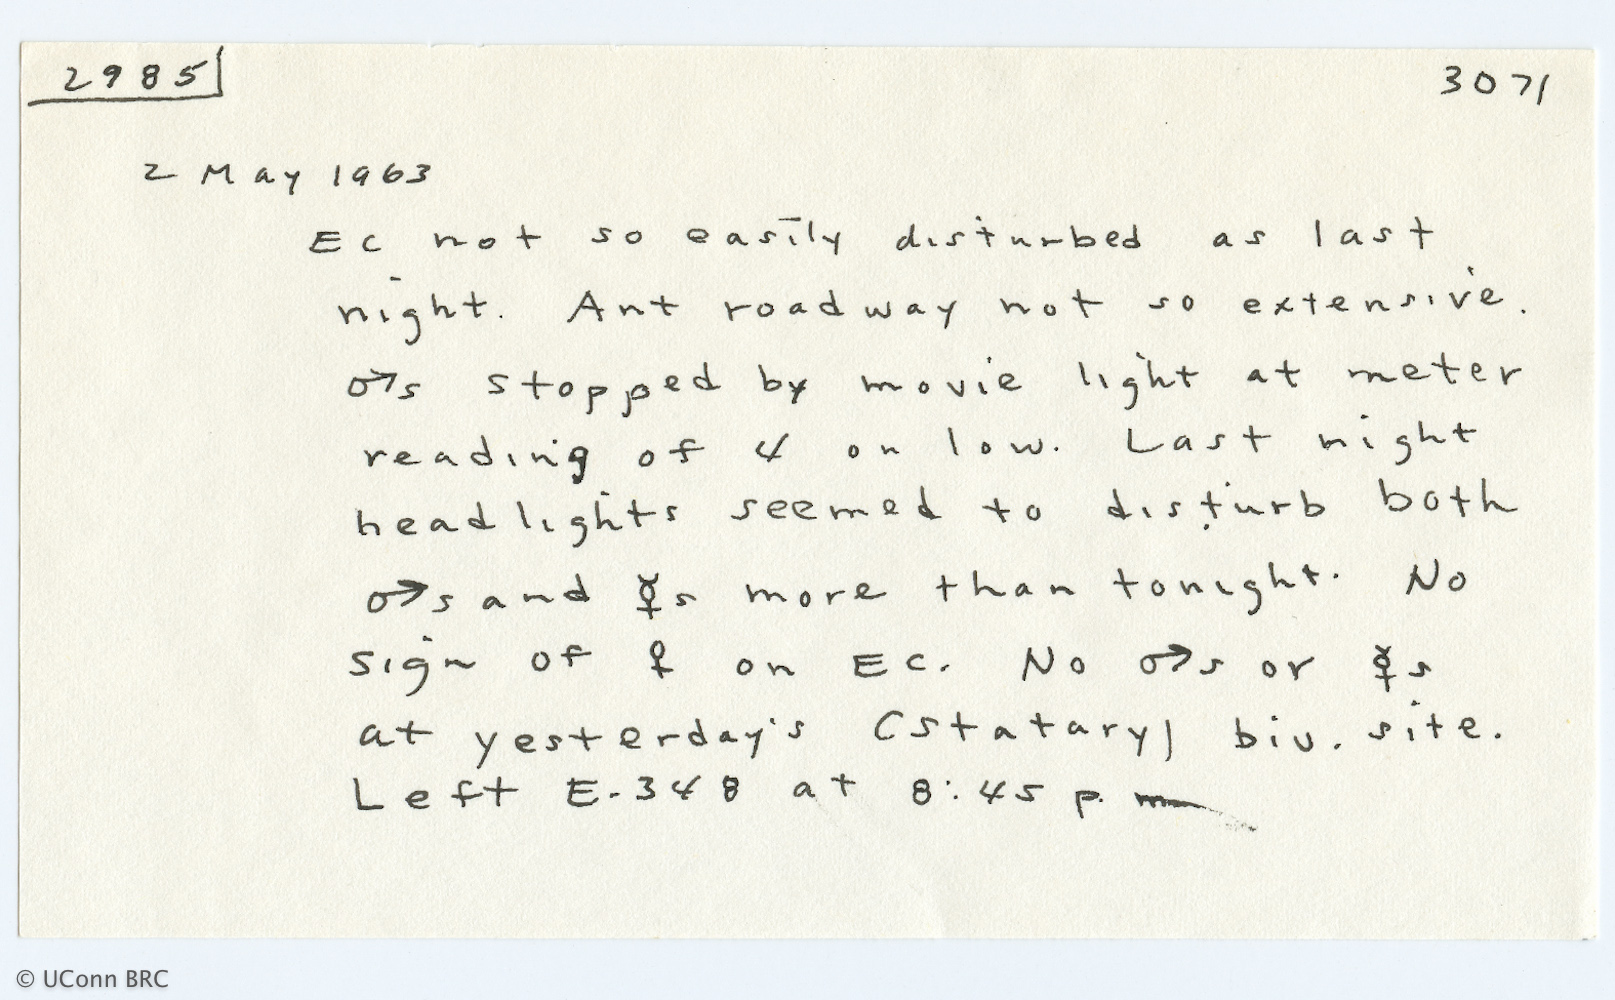 2985
3071
2 May 1963
Ec not so easily disturbed as last
night. Ant roadway not so extensive.
♂s stopped by movie light at meter
reading of 4 on low. Last night
headlights seemed to disturb both
♂s and ☿s more than tonight. No
sign of ♀ on EC. No ♂s or ☿s
at yesterday's (statary) biv. site.
Left E-348 at 8:45 p.m
© UConn BRC